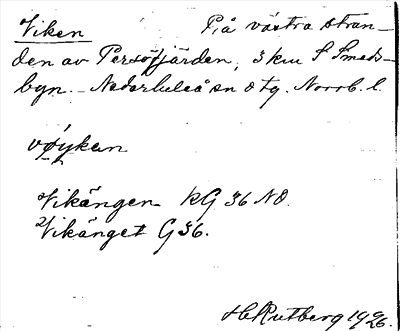 Viken På västra stran-
den av Persöfjärden, 3 km S Smeds-
byn. - Nederluleå sn o tg. Norrb. l.
vøyken
Vikängen KG 36 NO.
Vikänget G 36.
H. Rutberg 1926.